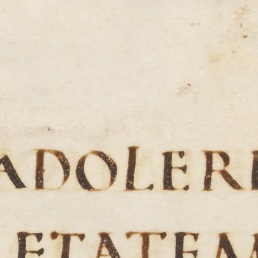 ADOLERE
ETATEM